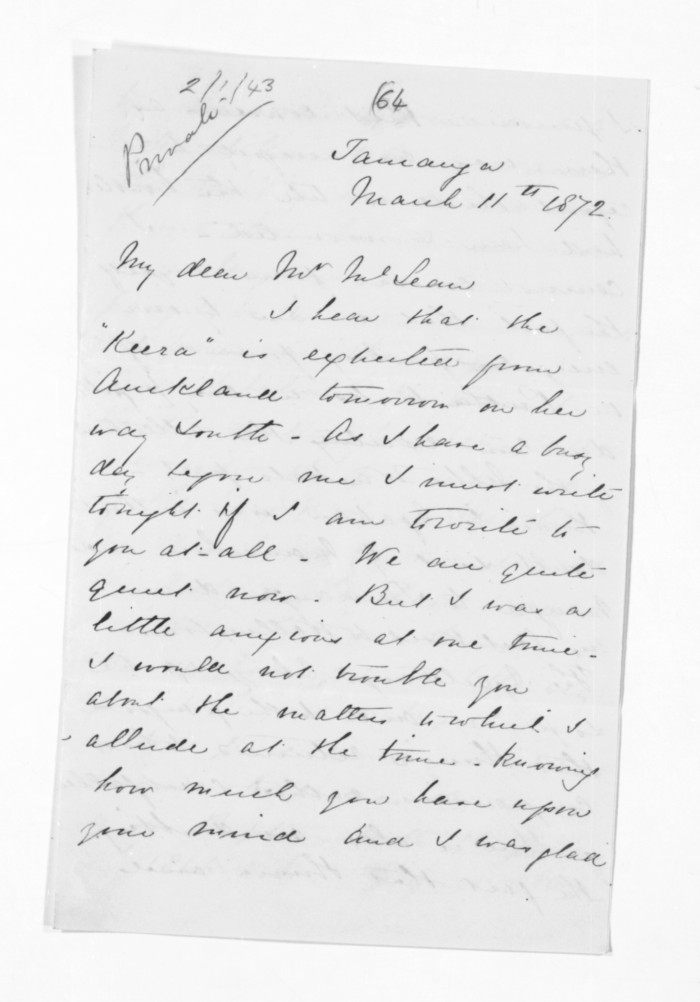 2/1/43
(64
Private
Tauranga
March 11th 1872.
My dear Mr McLean
I hear that the
"Keera" is expected from
Auckland tomorrow on her
way South - As I have a busy
day before me I must write
tonight if I am to write to
you at-all - We are quite
quiet now - But I was a
little anxious at one time -
I would not trouble you
about the matters to which I
allude at the time - knowing
how much you have upon
your mind and I was glad